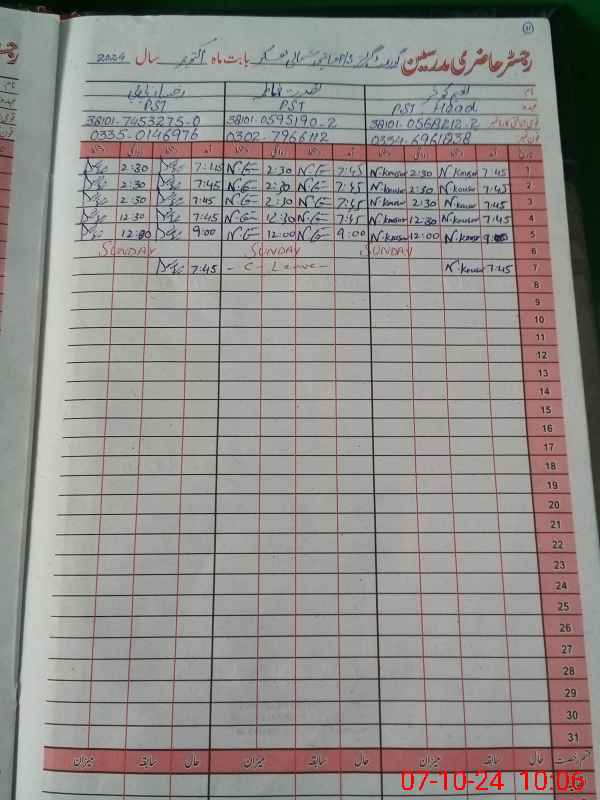 رجسٹر حاضری مدرسین بابت ماہ اکتوبر سال 2024
نام
PST Head PST PST
38101-0568212-2 38101-0595190-2 38101-7453275-0
0334-6961838 0302-7966112 0335-0146976
تاریخ آمد دستخط روانگی دستخط آمد دستخط روانگی دستخط آمد دستخط روانگی دستخط
1 7:45 N.Kousar 2:30 N.Kousar 7:45 2:30 7:45 2:30
2 7:45 N.Kousar 2:30 N.Kousar 7:45 2:30 7:45 2:30
3 7:45 N.Kousar 2:30 N.Kousar 7:45 2:30 7:45 2:30
4 7:45 N.Kousar 12:30 N.Kousar 7:45 12:30 7:45 12:30
5 9:00 N.Kousar 12:00 N.Kousar 9:00 12:00 9:00 12:30
6 SUNDAY SUNDAY SUNDAY
7 7:45 N.Kousar - C - Leave - 7:45
8
9
10
11
12
13
14
15
16
17
18
19
20
21
22
23
24
25
26
27
28
29
30
31
قسم رخصت حال سابقہ میزان حال سابقہ میزان حال سابقہ میزان
07-10-24 10:06